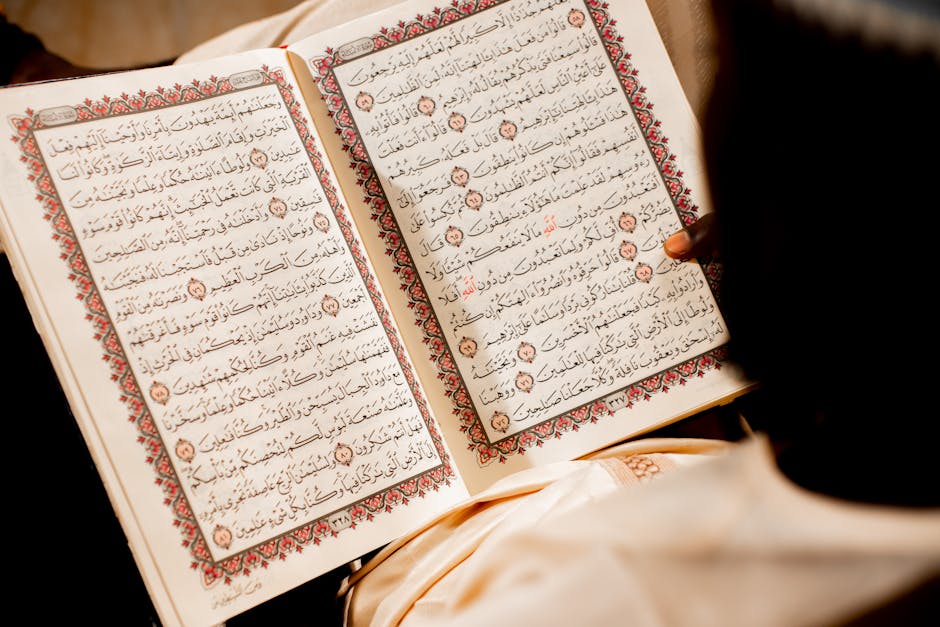 فَجَعَلَهُمْ جُذَٰذًا إِلَّا كَبِيرًا لَّهُمْ لَعَلَّهُمْ إِلَيْهِ يَرْجِعُونَ ٥٨
قَالُوا۟ مَن فَعَلَ هَٰذَا بِـَٔالِهَتِنَآ إِنَّهُۥ لَمِنَ ٱلظَّٰلِمِينَ ٥٩
قَالُوا۟ سَمِعْنَا فَتًى يَذْكُرُهُمْ يُقَالُ لَهُۥٓ إِبْرَٰهِيمُ ٦٠ قَالُوا۟ فَأْتُوا۟ بِهِۦ
عَلَىٰٓ أَعْيُنِ ٱلنَّاسِ لَعَلَّهُمْ يَشْهَدُونَ ٦١ قَالُوٓا۟ ءَأَنتَ فَعَلْتَ
هَٰذَا بِـَٔالِهَتِنَا يَٰٓإِبْرَٰهِيمُ ٦٢ قَالَ بَلْ فَعَلَهُۥ كَبِيرُهُمْ
هَٰذَا فَسْـَٔلُوهُمْ إِن كَانُوا۟ يَنطِقُونَ ٦٣ فَرَجَعُوٓا۟ إِلَىٰٓ
أَنفُسِهِمْ فَقَالُوٓا۟ إِنَّكُمْ أَنتُمُ ٱلظَّٰلِمُونَ ٦٤ ثُمَّ نُكِسُوا۟ عَلَىٰ
رُءُوسِهِمْ لَقَدْ عَلِمْتَ مَا هَٰٓؤُلَآءِ يَنطِقُونَ ٦٥ قَالَ
أَفَتَعْبُدُونَ مِن دُونِ ٱللَّهِ مَا لَا يَنفَعُكُمْ شَيْـًٔا وَلَا
يَضُرُّكُمْ ٦٦ أُفٍّ لَّكُمْ وَلِمَا تَعْبُدُونَ مِن دُونِ ٱللَّهِ أَفَلَا
تَعْقِلُونَ ٦٧ قَالُوا۟ حَرِّقُوهُ وَٱنصُرُوٓا۟ ءَالِهَتَكُمْ إِن كُنتُمْ
فَٰعِلِينَ ٦٨ قُلْنَا يَٰنَارُ كُونِى بَرْدًا وَسَلَٰمًا عَلَىٰٓ إِبْرَٰهِيمَ ٦٩
وَأَرَادُوا۟ بِهِۦ كَيْدًا فَجَعَلْنَٰهُمُ ٱلْأَخْسَرِينَ ٧٠ وَنَجَّيْنَٰهُ
وَلُوطًا إِلَى ٱلْأَرْضِ ٱلَّتِى بَٰرَكْنَا فِيهَا لِلْعَٰلَمِينَ ٧١ وَوَهَبْنَا
لَهُۥٓ إِسْحَٰقَ وَيَعْقُوبَ نَافِلَةً وَكُلًّا جَعَلْنَا صَٰلِحِينَ ٧٢
٣٢٧
وَجَعَلْنَٰهُمْ أَئِمَّةً يَهْدُونَ بِأَمْرِنَا وَأَوْحَيْنَآ إِلَيْهِمْ فِعْلَ
ٱلْخَيْرَٰتِ وَإِقَامَ ٱلصَّلَوٰةِ وَإِيتَآءَ ٱلزَّكَوٰةِ وَكَانُوا۟ لَنَا
عَٰبِدِينَ ٧٣ وَلُوطًا ءَاتَيْنَٰهُ حُكْمًا وَعِلْمًا وَنَجَّيْنَٰهُ مِنَ
ٱلْقَرْيَةِ ٱلَّتِى كَانَت تَّعْمَلُ ٱلْخَبَٰٓئِثَ إِنَّهُمْ كَانُوا۟ قَوْمَ سَوْءٍ
فَٰسِقِينَ ٧٤ وَأَدْخَلْنَٰهُ فِى رَحْمَتِنَآ إِنَّهُۥ مِنَ ٱلصَّٰلِحِينَ ٧٥
وَنُوحًا إِذْ نَادَىٰ مِن قَبْلُ فَٱسْتَجَبْنَا لَهُۥ فَنَجَّيْنَٰهُ
وَأَهْلَهُۥ مِنَ ٱلْكَرْبِ ٱلْعَظِيمِ ٧٦ وَنَصَرْنَٰهُ مِنَ ٱلْقَوْمِ
ٱلَّذِينَ كَذَّبُوا۟ بِـَٔايَٰتِنَآ إِنَّهُمْ كَانُوا۟ قَوْمَ سَوْءٍ فَأَغْرَقْنَٰهُمْ
أَجْمَعِينَ ٧٧ وَدَاوُۥدَ وَسُلَيْمَٰنَ إِذْ يَحْكُمَانِ فِى ٱلْحَرْثِ إِذْ
نَفَشَتْ فِيهِ غَنَمُ ٱلْقَوْمِ وَكُنَّا لِحُكْمِهِمْ شَٰهِدِينَ ٧٨
فَفَهَّمْنَٰهَا سُلَيْمَٰنَ وَكُلًّا ءَاتَيْنَا حُكْمًا وَعِلْمًا وَسَخَّرْنَا
مَعَ دَاوُۥدَ ٱلْجِبَالَ يُسَبِّحْنَ وَٱلطَّيْرَ وَكُنَّا فَٰعِلِينَ ٧٩
وَعَلَّمْنَٰهُ صَنْعَةَ لَبُوسٍ لَّكُمْ لِتُحْصِنَكُم مِّنۢ بَأْسِكُمْ
فَهَلْ أَنتُمْ شَٰكِرُونَ ٨٠ وَلِسُلَيْمَٰنَ ٱلرِّيحَ عَاصِفَةً تَجْرِى بِأَمْرِهِۦٓ
إِلَى ٱلْأَرْضِ ٱلَّتِى بَٰرَكْنَا فِيهَا وَكُنَّا بِكُلِّ شَىْءٍ عَٰلِمِينَ ٨١
٣٢٨